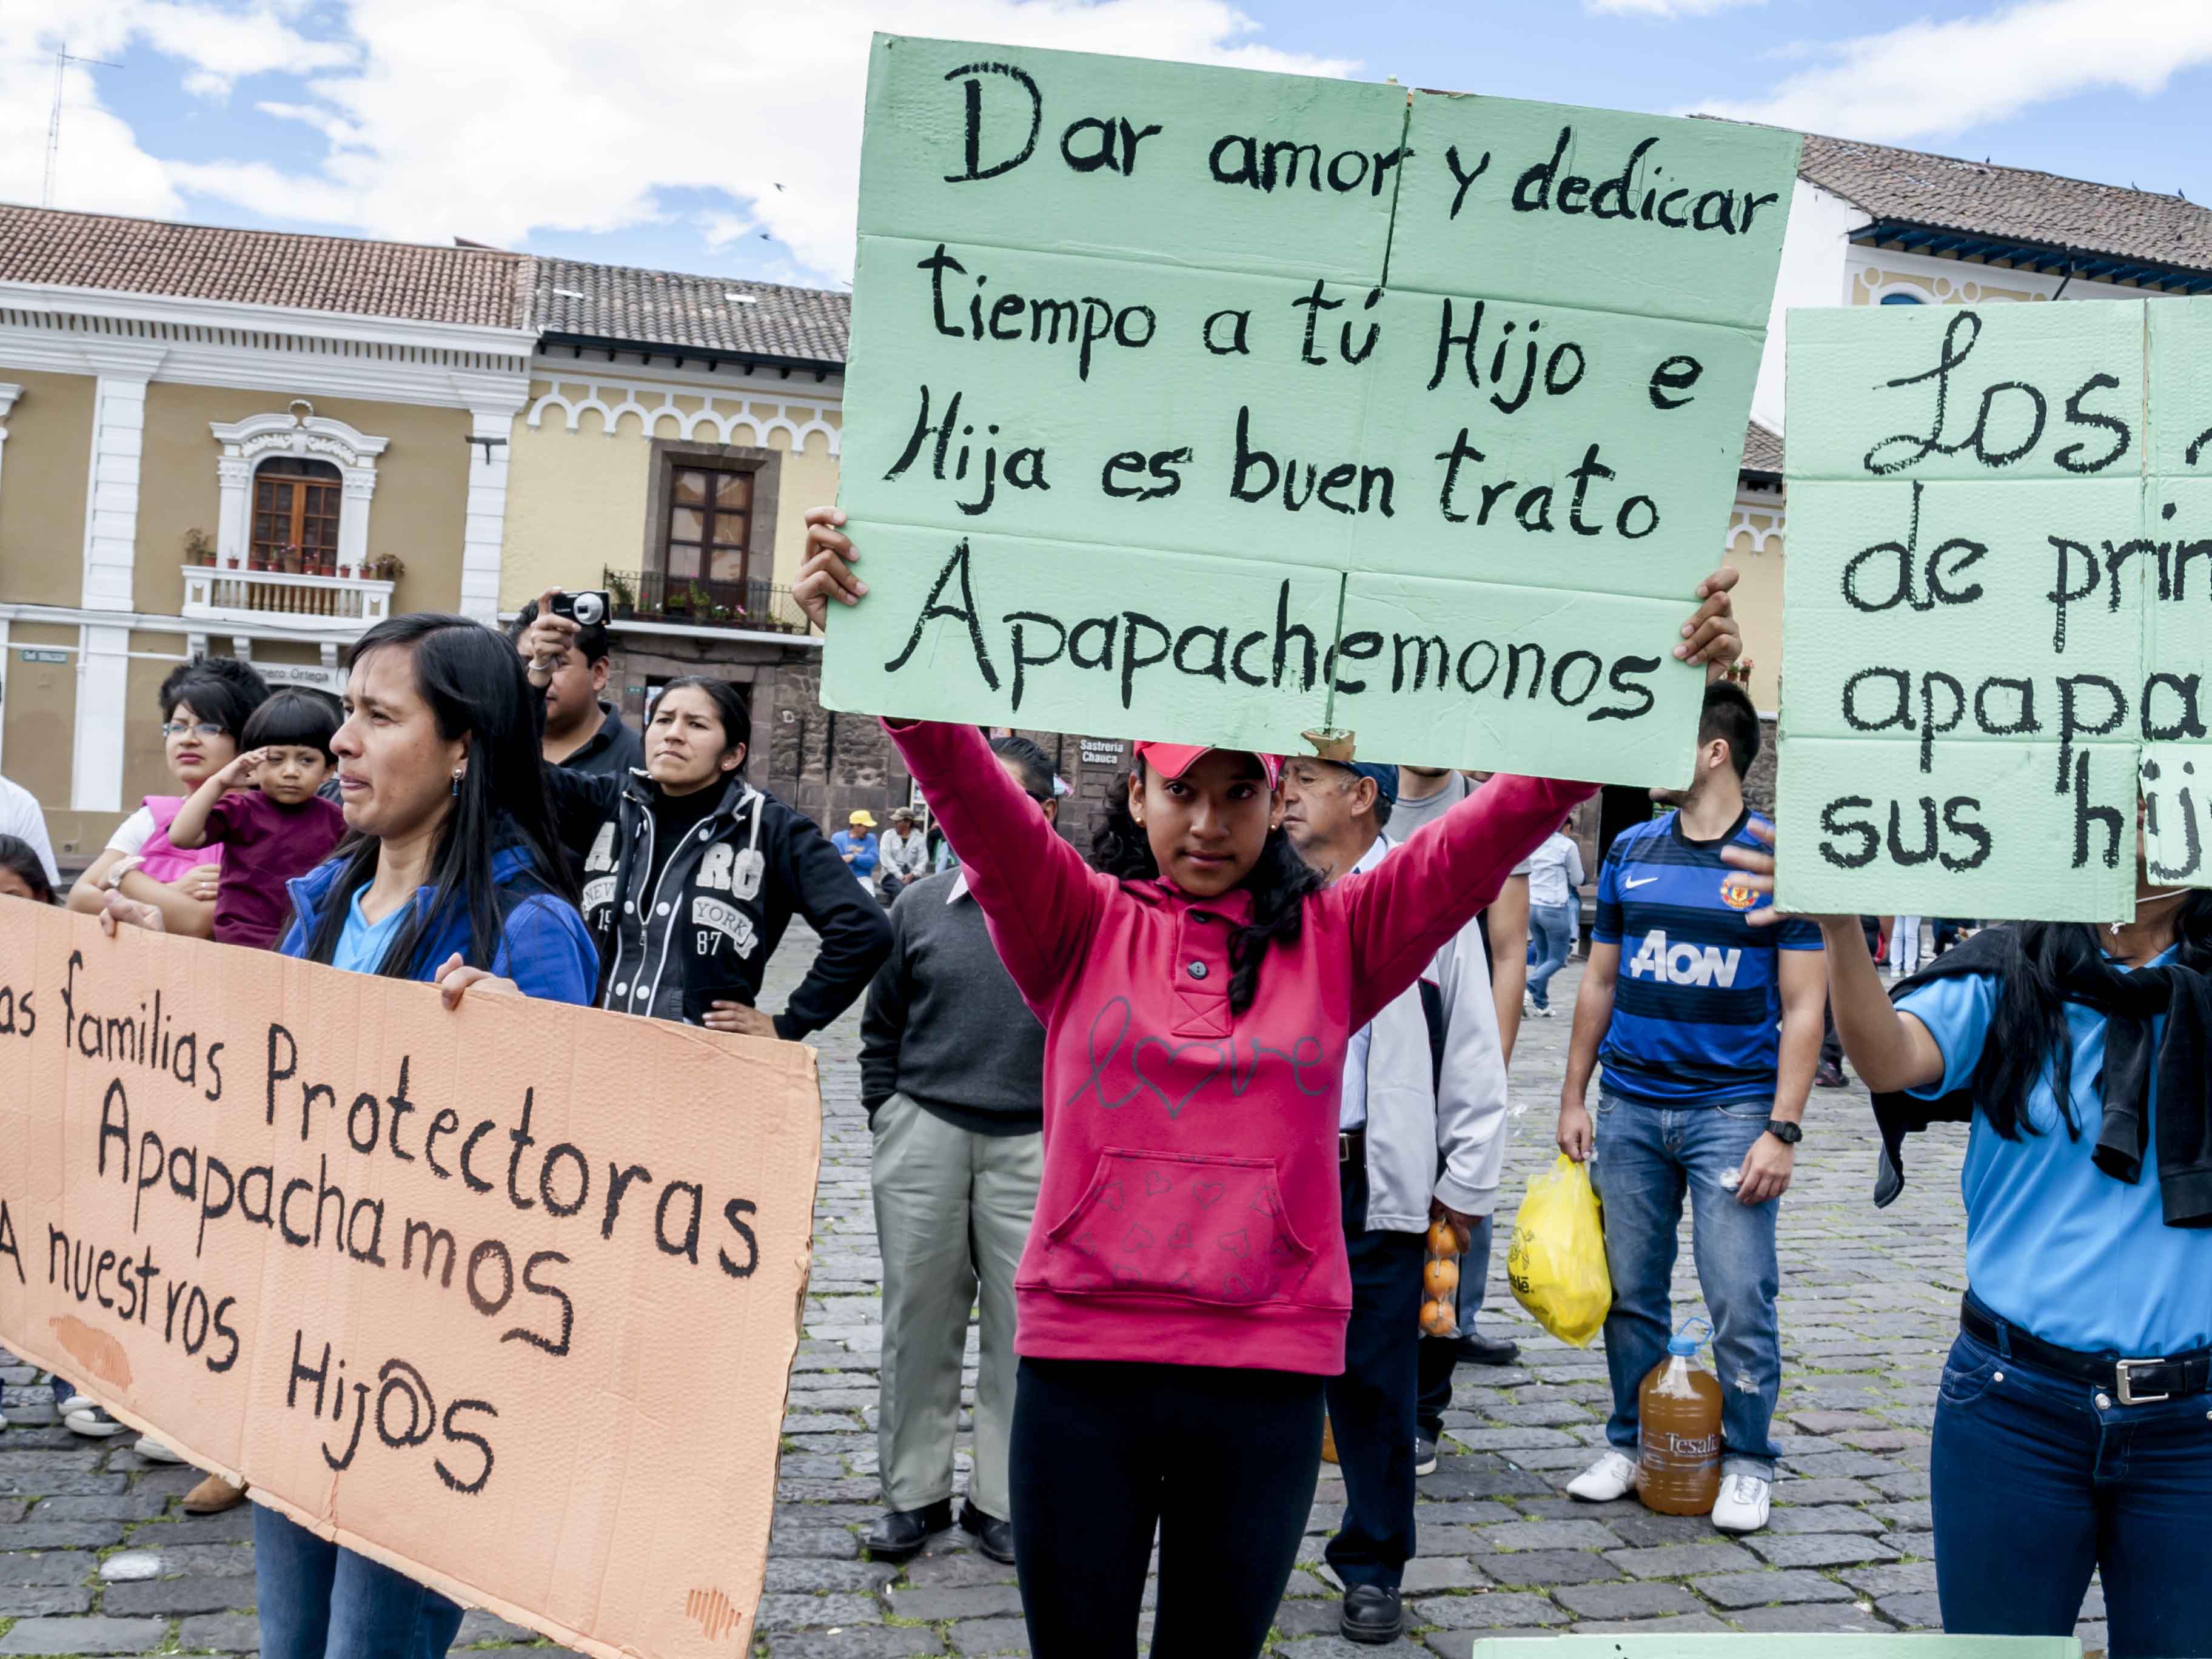 Dar amor y dedicar
tiempo a tú Hijo e
Hija es buen trato
Apapachemonos
Los
de
apapa
sus hij
as familias Protectoras
Apapachamos
A nuestros Hij@s
love
NEW
YORK
87
AON
Tesali
Sastrería
Chauca
Ortega